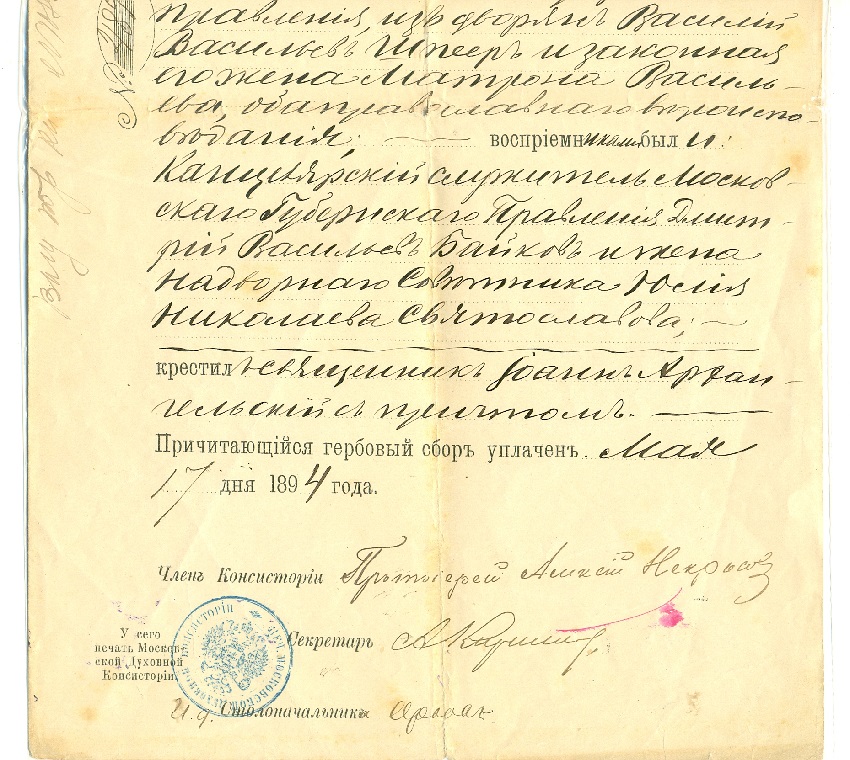 Правленія, изъ дворянъ Василій
Васильевъ Шпееръ и законная
его жена Матрона Василь-
ева, оба православнаго вѣроиспо-
вѣданія; воспріемниками был и:
Канцелярскій служитель Москов-
скаго Губернскаго Правленія Дмит-
рій Васильевъ Байковъ и жена
Надворнаго Совѣтника Юлія
Николаева Святославова;
крестилъ священникъ Іоаннъ Архан-
гельскій съ причтомъ.
Причитающійся гербовый сборъ уплаченъ. Мая
17 дня 1894 года.
Членъ Консисторіи Протоіерей Алексій Некрасов
У сего
печать Москов-
ской Духовной
Консисторіи.
Секретарь
И. д. Столоначальника Орлов